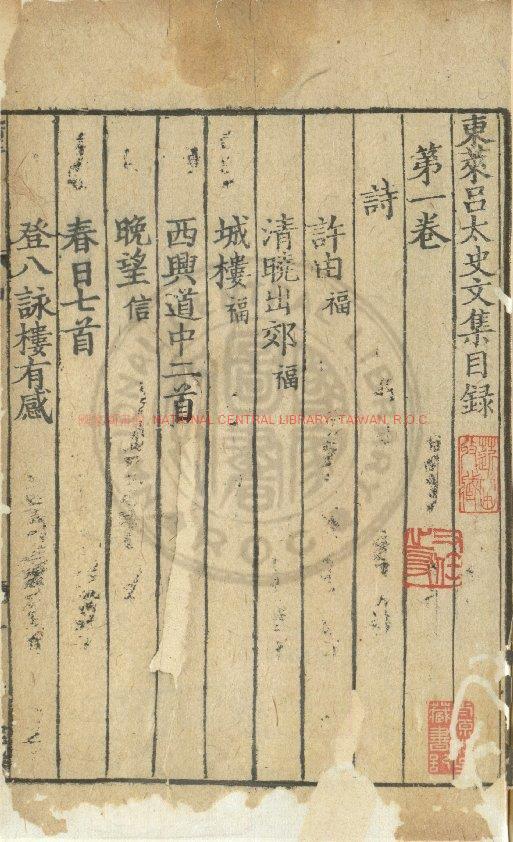 東萊呂太史文集目録
第一卷
詩
許由 福
清曉出郊 福
城樓 福
西興道中二首
晚望 信
春日七首
登八詠樓有感
NATIONAL CENTRAL LIBRARY, TAIWAN, R.O.C
藏書